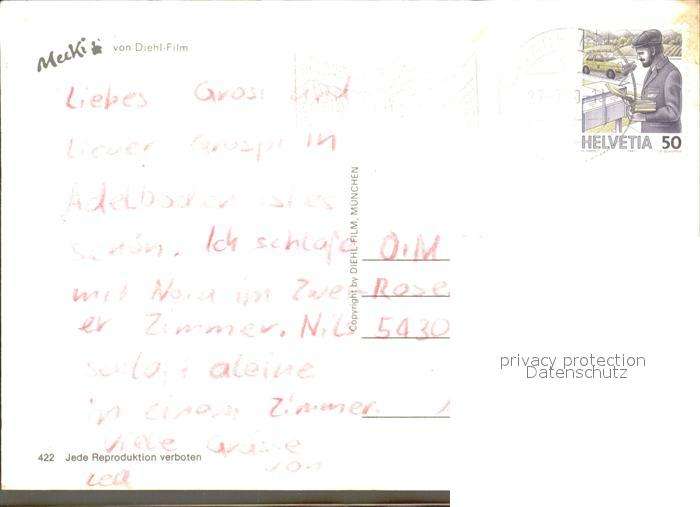 Mecki von Diehl-Film
HELVETIA 50
Liebes Grosi und
Lieber Grospi in
Adelboden ist es
schön. Ich schlafe
mit Nora im Zwei
er Zimmer. Nils
schlaft aleine
in einem Zimmer.
viele Grüsse
von
O.M
Rose
5430
Copyright by DIEHL-FILM, MÜNCHEN
privacy protection
Datenschutz
422 Jede Reproduktion verboten